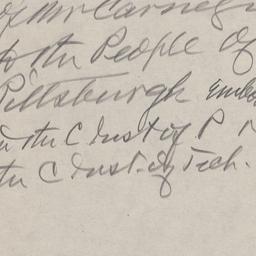 of Mr Carnegi
to the People of
Pittsburgh
in the C Inst of P
the C Inst. of Tech.